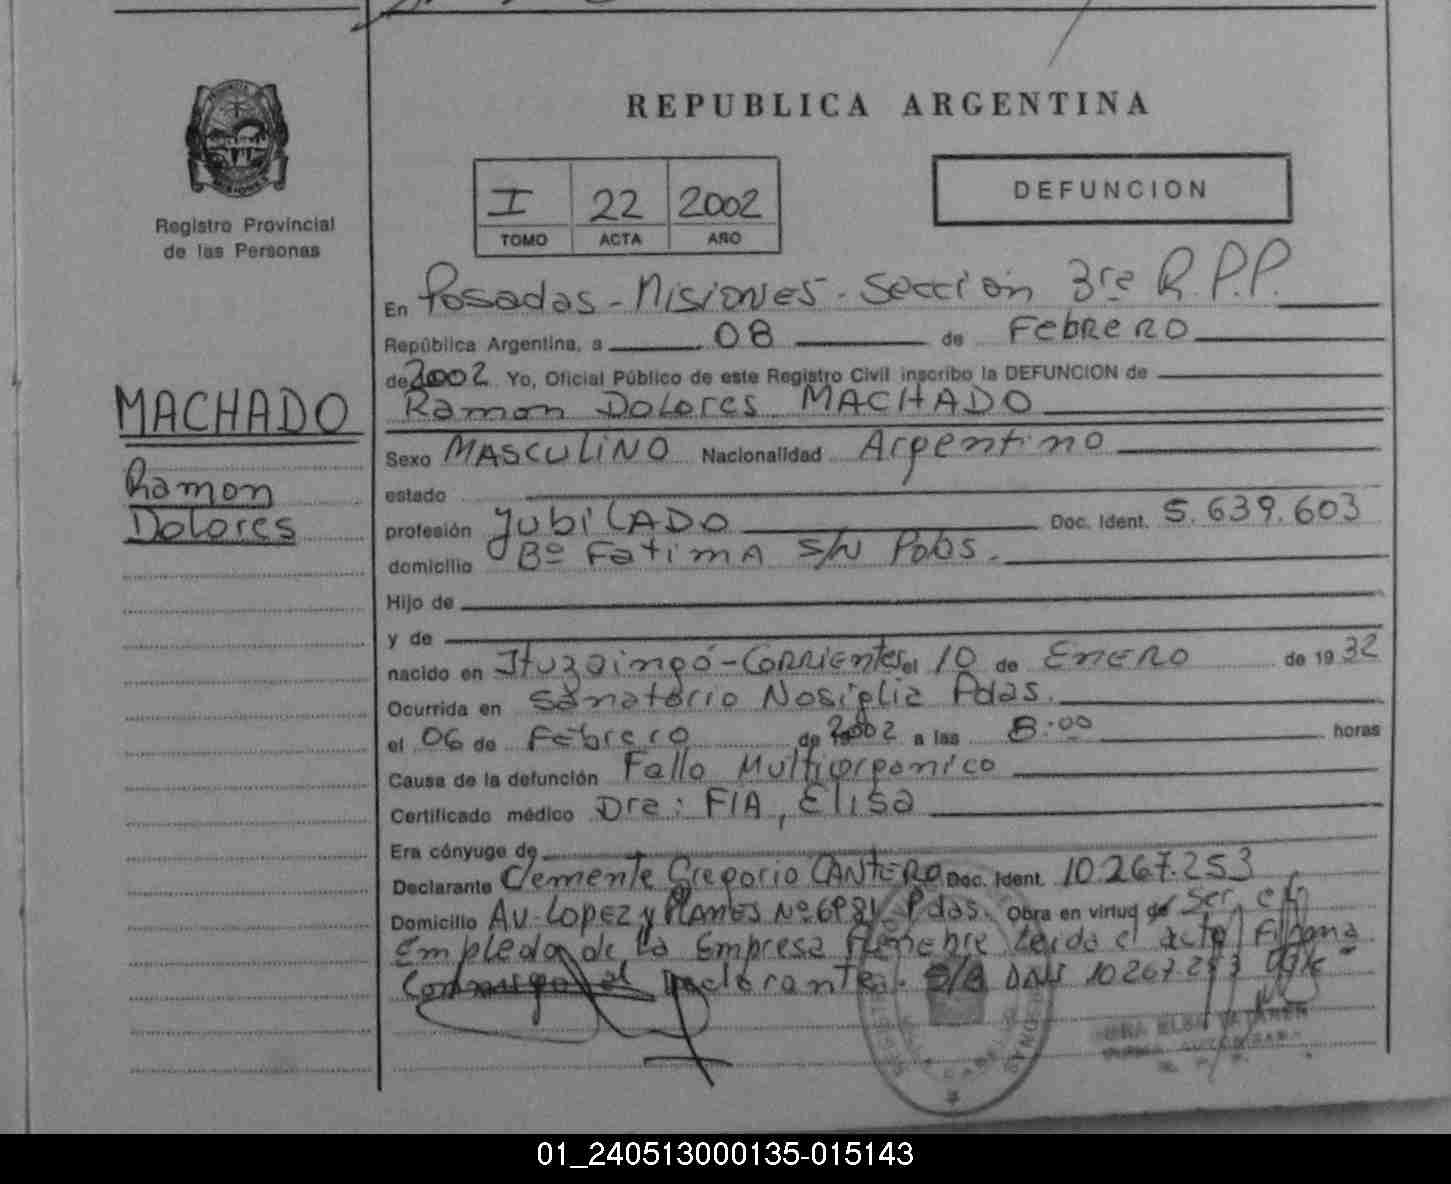 REPUBLICA ARGENTINA
Registro Provincial
de las Personas
I 22 2002
TOMO ACTA AÑO
DEFUNCION
MACHADO
Ramon
Dolores
En Posadas - Misiones - Sección 3ra R.P.P.
República Argentina, a 08 de Febrero
de 2002 Yo, Oficial Público de este Registro Civil inscribo la DEFUNCION de
Ramon Dolores MACHADO
Sexo MASCULINO Nacionalidad Argentino
estado
profesión JubiLADO Doc. Ident. 5.639.603
domicilio Bº Fatima s/N Pdas.
Hijo de
y de
nacido en Ituzaingó - Corrientes el 10 de Enero de 19 32
Ocurrida en Sanatorio Nosiglia Pdas.
el 06 de Febrero de 2002 a las 8:00 horas
Causa de la defunción Fallo Multiorganico
Certificado médico Dra: FIA, Elisa
Era cónyuge de
Declarante Clemente Gregorio CANTERO Doc. Ident. 10.267.253
Domicilio Av. Lopez y Planes Nº 6981 Pdas. Obra en virtud de Ser el
Empleado de la Empresa Funebre Leida el acta Firma
Conmigo el Declarante. DNI 10.267.253
01_240513000135-015143